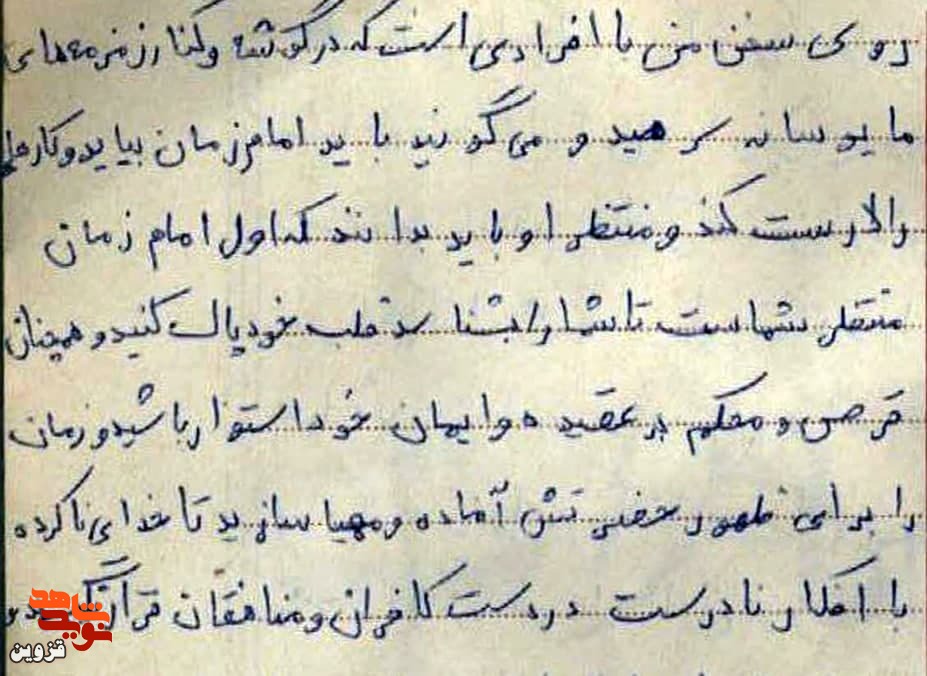 روی سخن من با افرادی است که در گوشه و کنار زمزمه‌های
مایوسانه سر می‌دهید و می‌گویند باید امام زمان بیاید و کارها
را درست کند و منتظر او باید بدانند که اول امام زمان
منتظر شماست تا شما را بشناسد قلب خود پاک کنید و همچنان
قرص و محکم بر عقیده و ایمان خود استوار باشید و زمان
را برای ظهور حضرتش آماده و مهیا سازید تا خدای ناکرده
با افکار نادرست در دست کافران و منافقان قرار
شاهد
نوید
قزوین